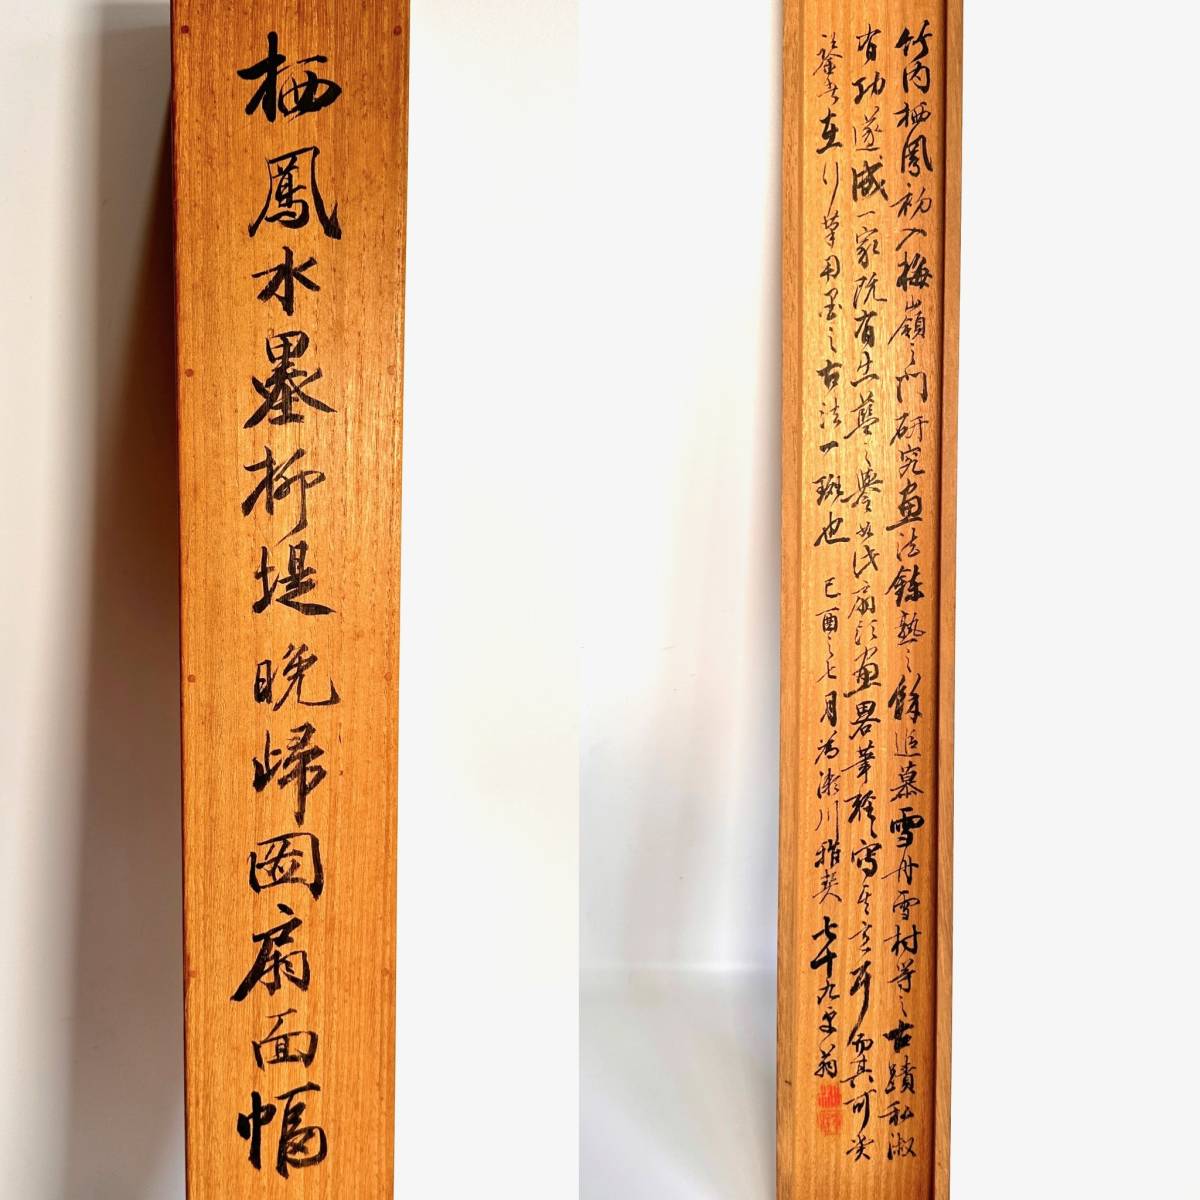 栖鳳水墨柳堤晩帰図扇面幅
竹内栖鳳初入梅嶺之門研究画法錬熟之餘追慕雪舟雪村等之古蹟私淑
有功遂成一家既有出藍之誉如此扇頭画畧筆軽写其意耳而其可賞
鑒者在行筆用墨之古法一斑也 己酉之七月為瀬川雅契 七十九叟翁